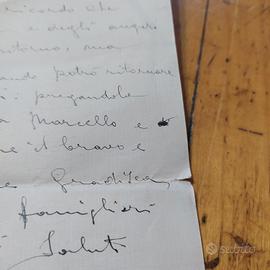 ricordo che
e degli auguri
ritorno, sua
ando potrò ritornare
pregandola
Marcello e
il bravo e
e Gradisca
famigliari
Saluti
subito